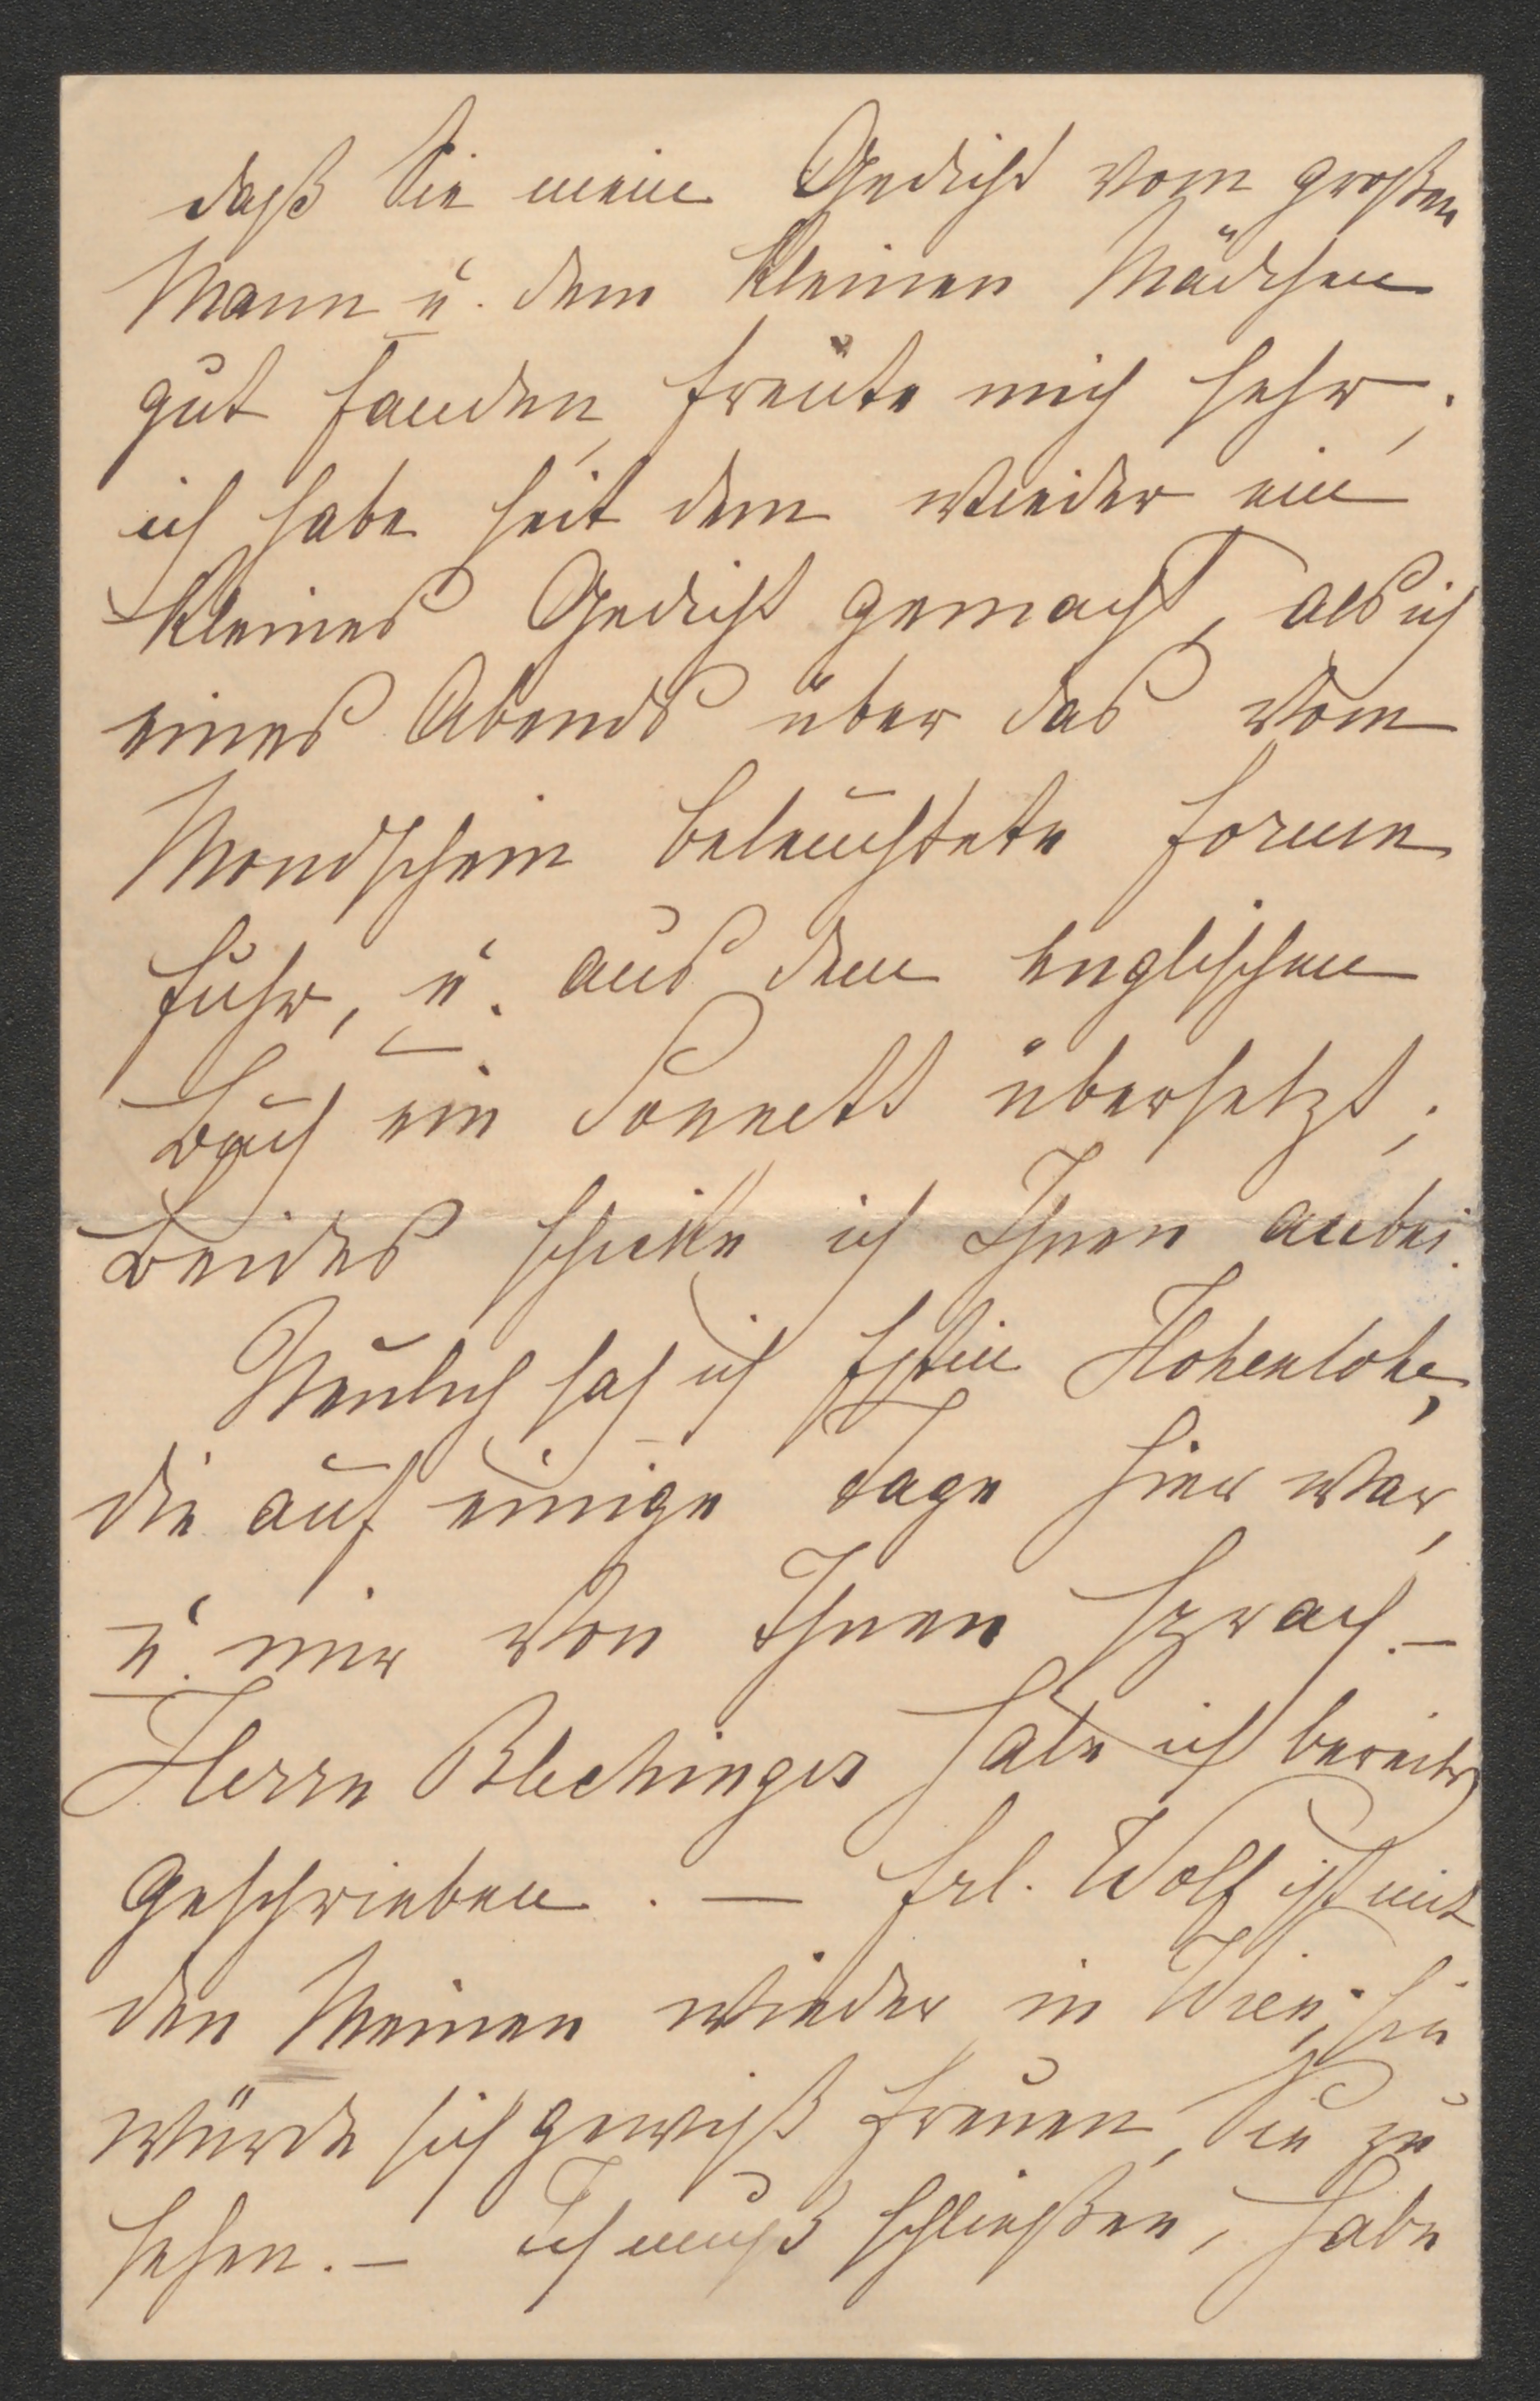 daß Sie mein Gedicht vom großen
Mann u. dem kleinen Mädchen
gut fanden, freute mich sehr;
ich habe seit dem wieder ein
kleines Gedicht gemacht, als ich
eines Abends über das vom
Mondschein beleuchtete Forum
fuhr, u. aus dem englischen
Buch ein Sonnett übersetzt;
beides schicke ich Ihnen anbei.
Neulich sah ich Fstin Hohenlohe,
die auf einige Tage hier war,
u. mir von Ihnen sprach. –
Herrn Blechinger habe ich bereits
geschrieben. – Frl. Wolf ist mit
den Meinen wieder in Wien; sie
würde sich gewiß freuen, Sie zu
sehen. – Ich muß schließen, habe